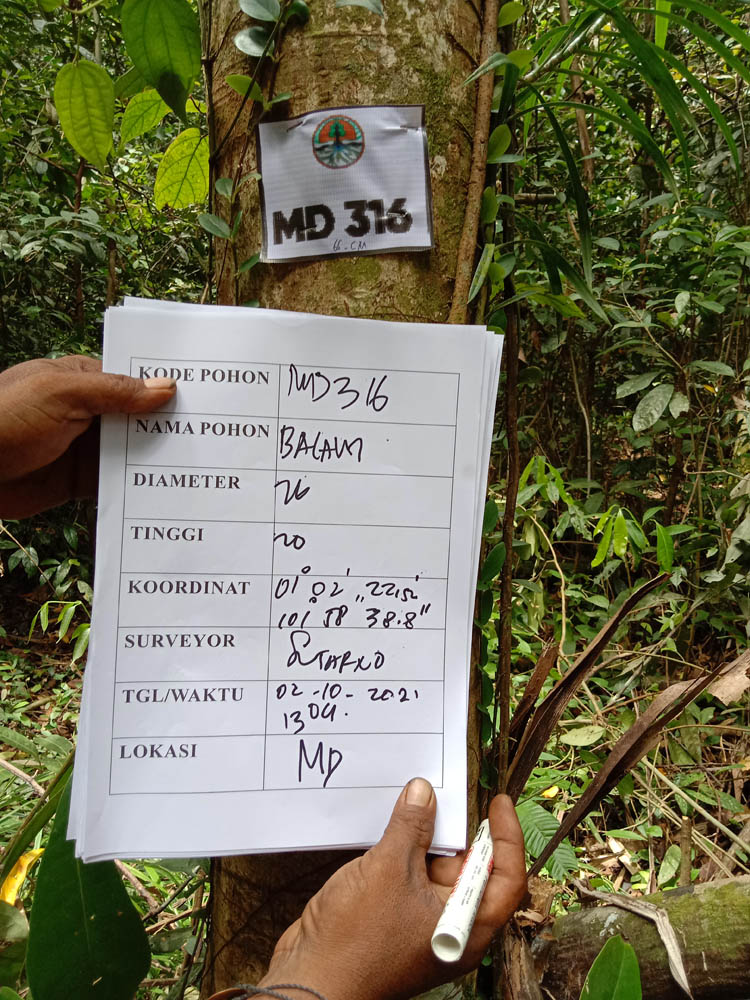 MD 316
66 - CM
KODE POHON MD 316
NAMA POHON BALAM
DIAMETER 26
TINGGI 20
KOORDINAT 01° 02' 22.52"
101° 58' 38.8"
SURVEYOR SUTARNO
TGL/WAKTU 02 - 10 - 2021
13 04.
LOKASI MD